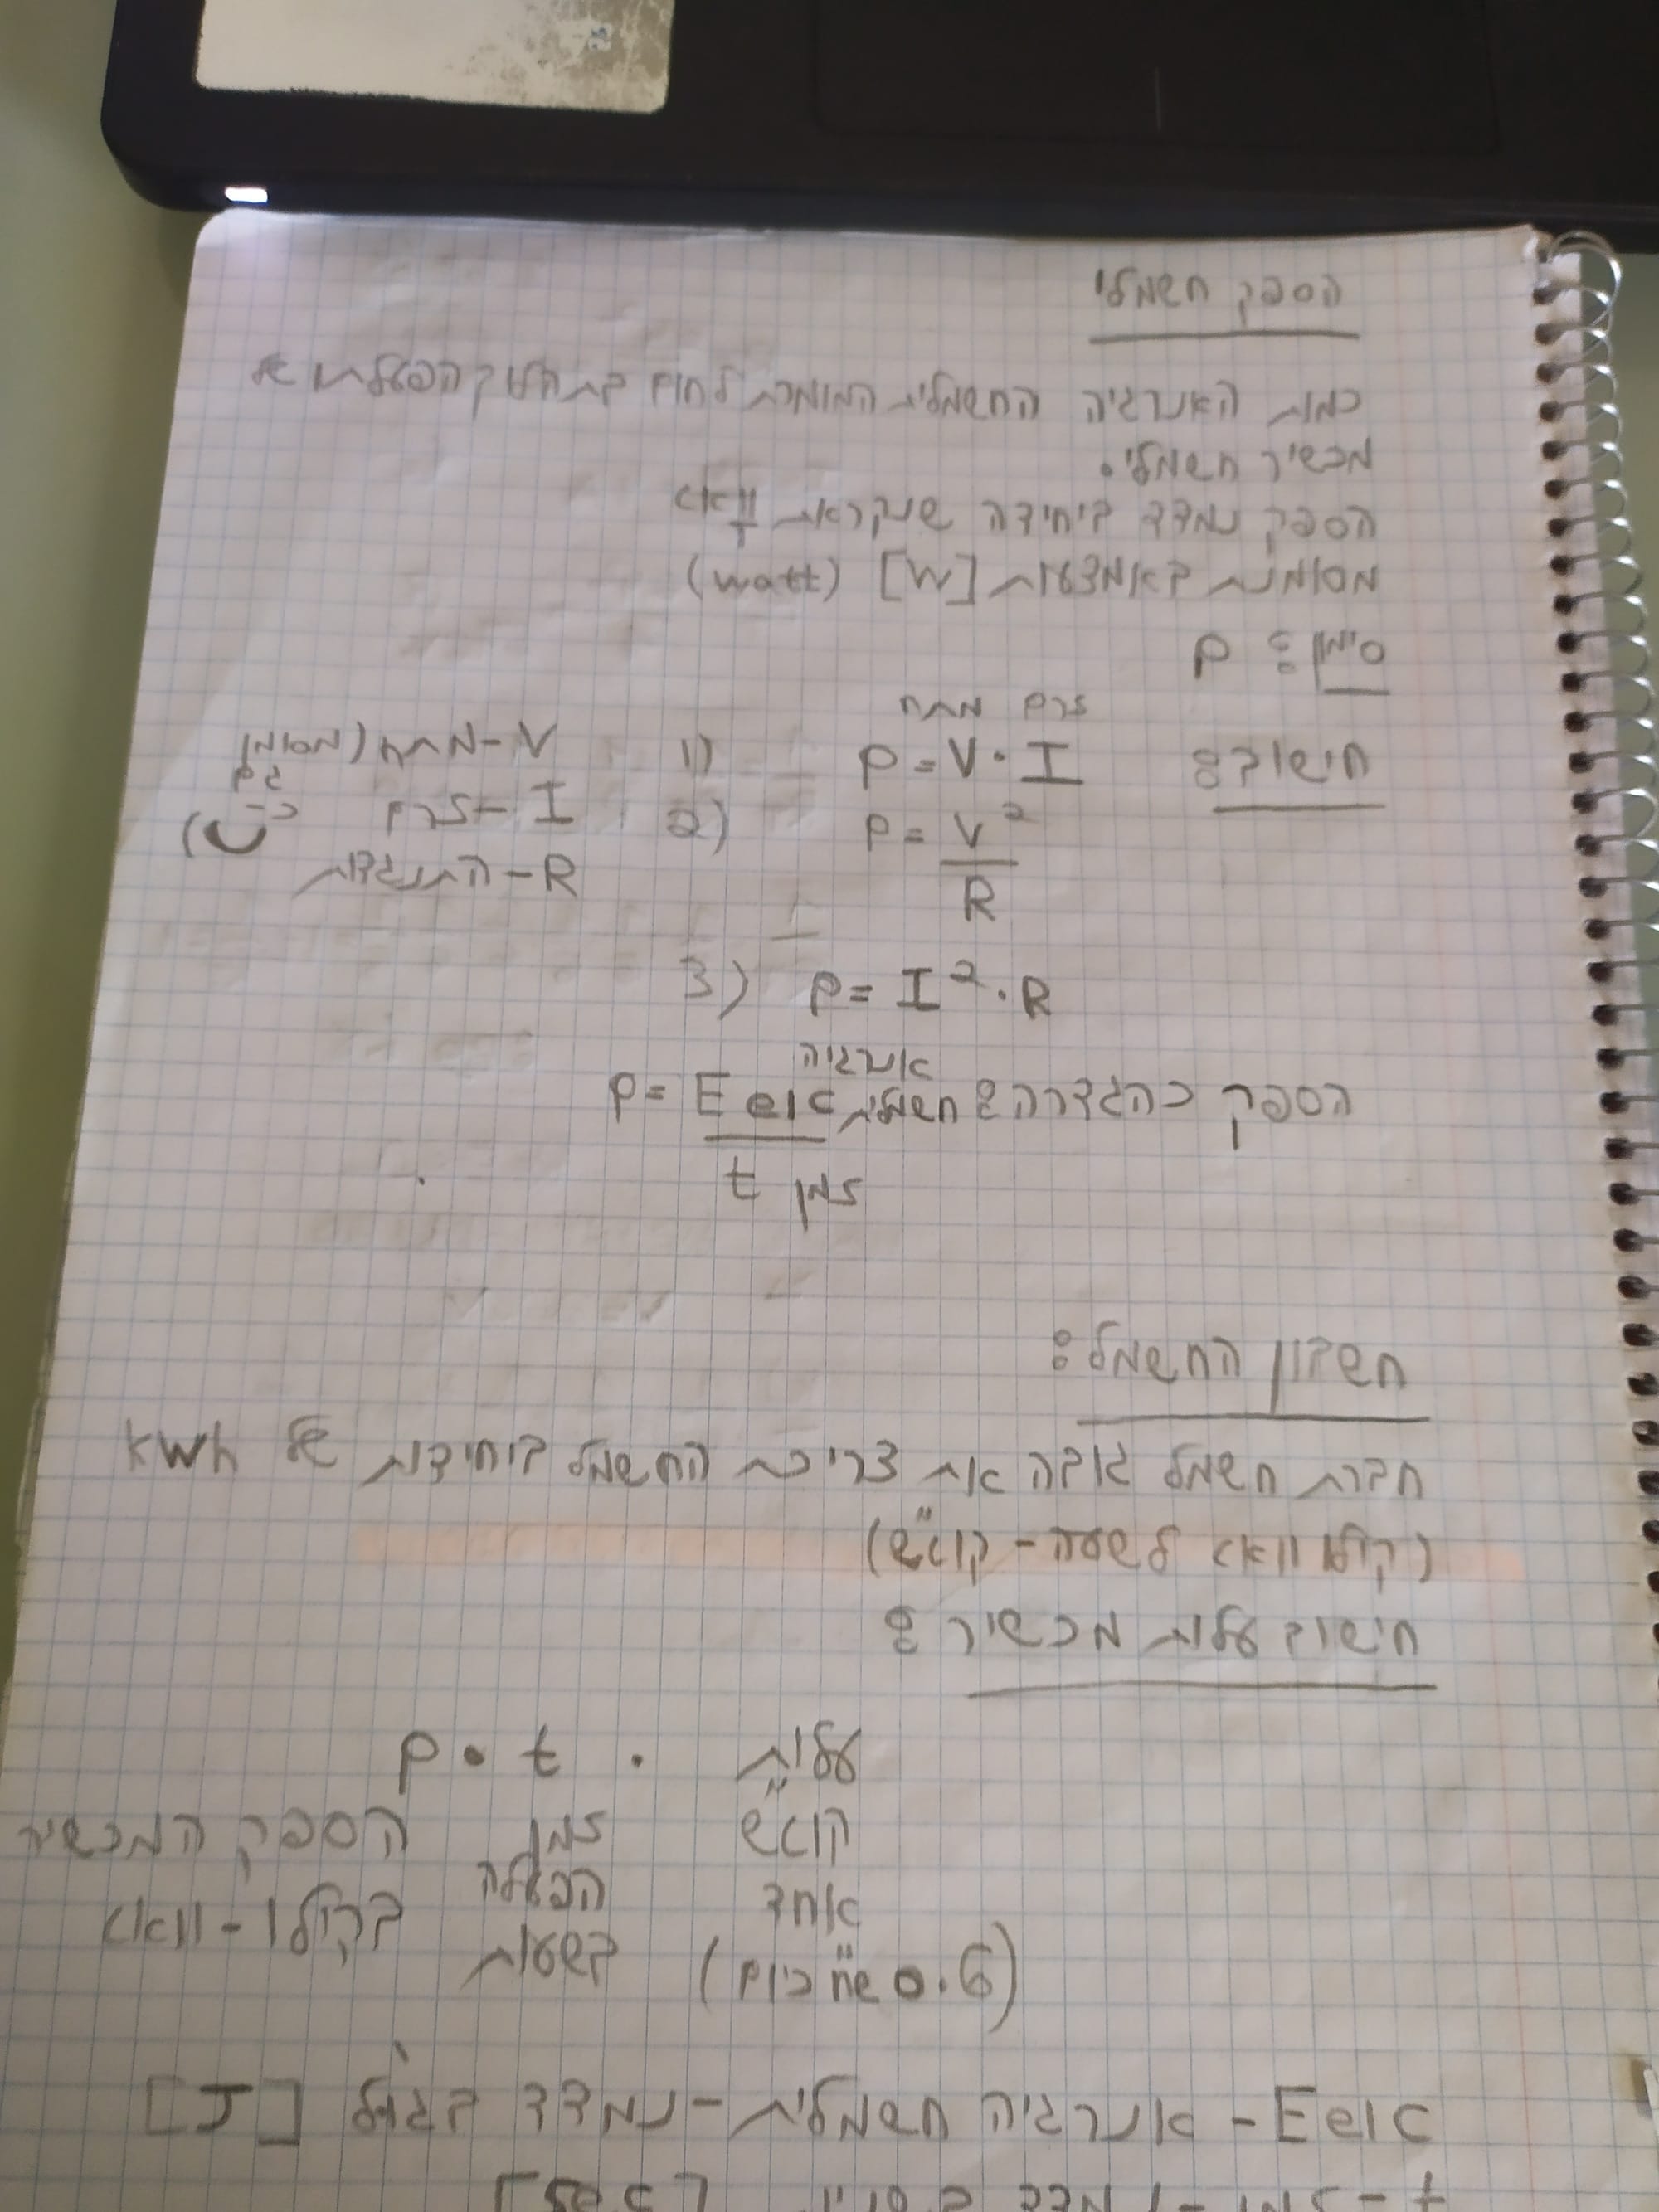 הספק חשמלי
כמות האנרגיה החשמלית המומרת לחום בתהליך הפעלתו של
מכשיר חשמלי.
הספק נמדד ביחידה שנקראת וואט
מסומנת באמצעות [W] (watt)
סימון: P
זרם מתח
חישוב: 1) P = V · I
2) P = V²/R
V - מתח (מסומן גם כ- U)
I - זרם
R - התנגדות
3) P = I² · R
הספק כהגדרה: P = Eelc אנרגיה חשמלית / t זמן
חשבון החשמל:
חברת חשמל גובה את צריכת החשמל ביחידות של kwh
(קילו וואט לשעה - קוט"ש)
חישוב עלות מכשיר:
P · t · עלות קוט"ש אחד
הספק המכשיר בקילו-וואט
זמן הפעלה בשעות
(0.6 ש"ח כיום)
Eelc - אנרגיה חשמלית - נמדד בג'ול [J]
t - זמן - נמדד בשניות [sec]